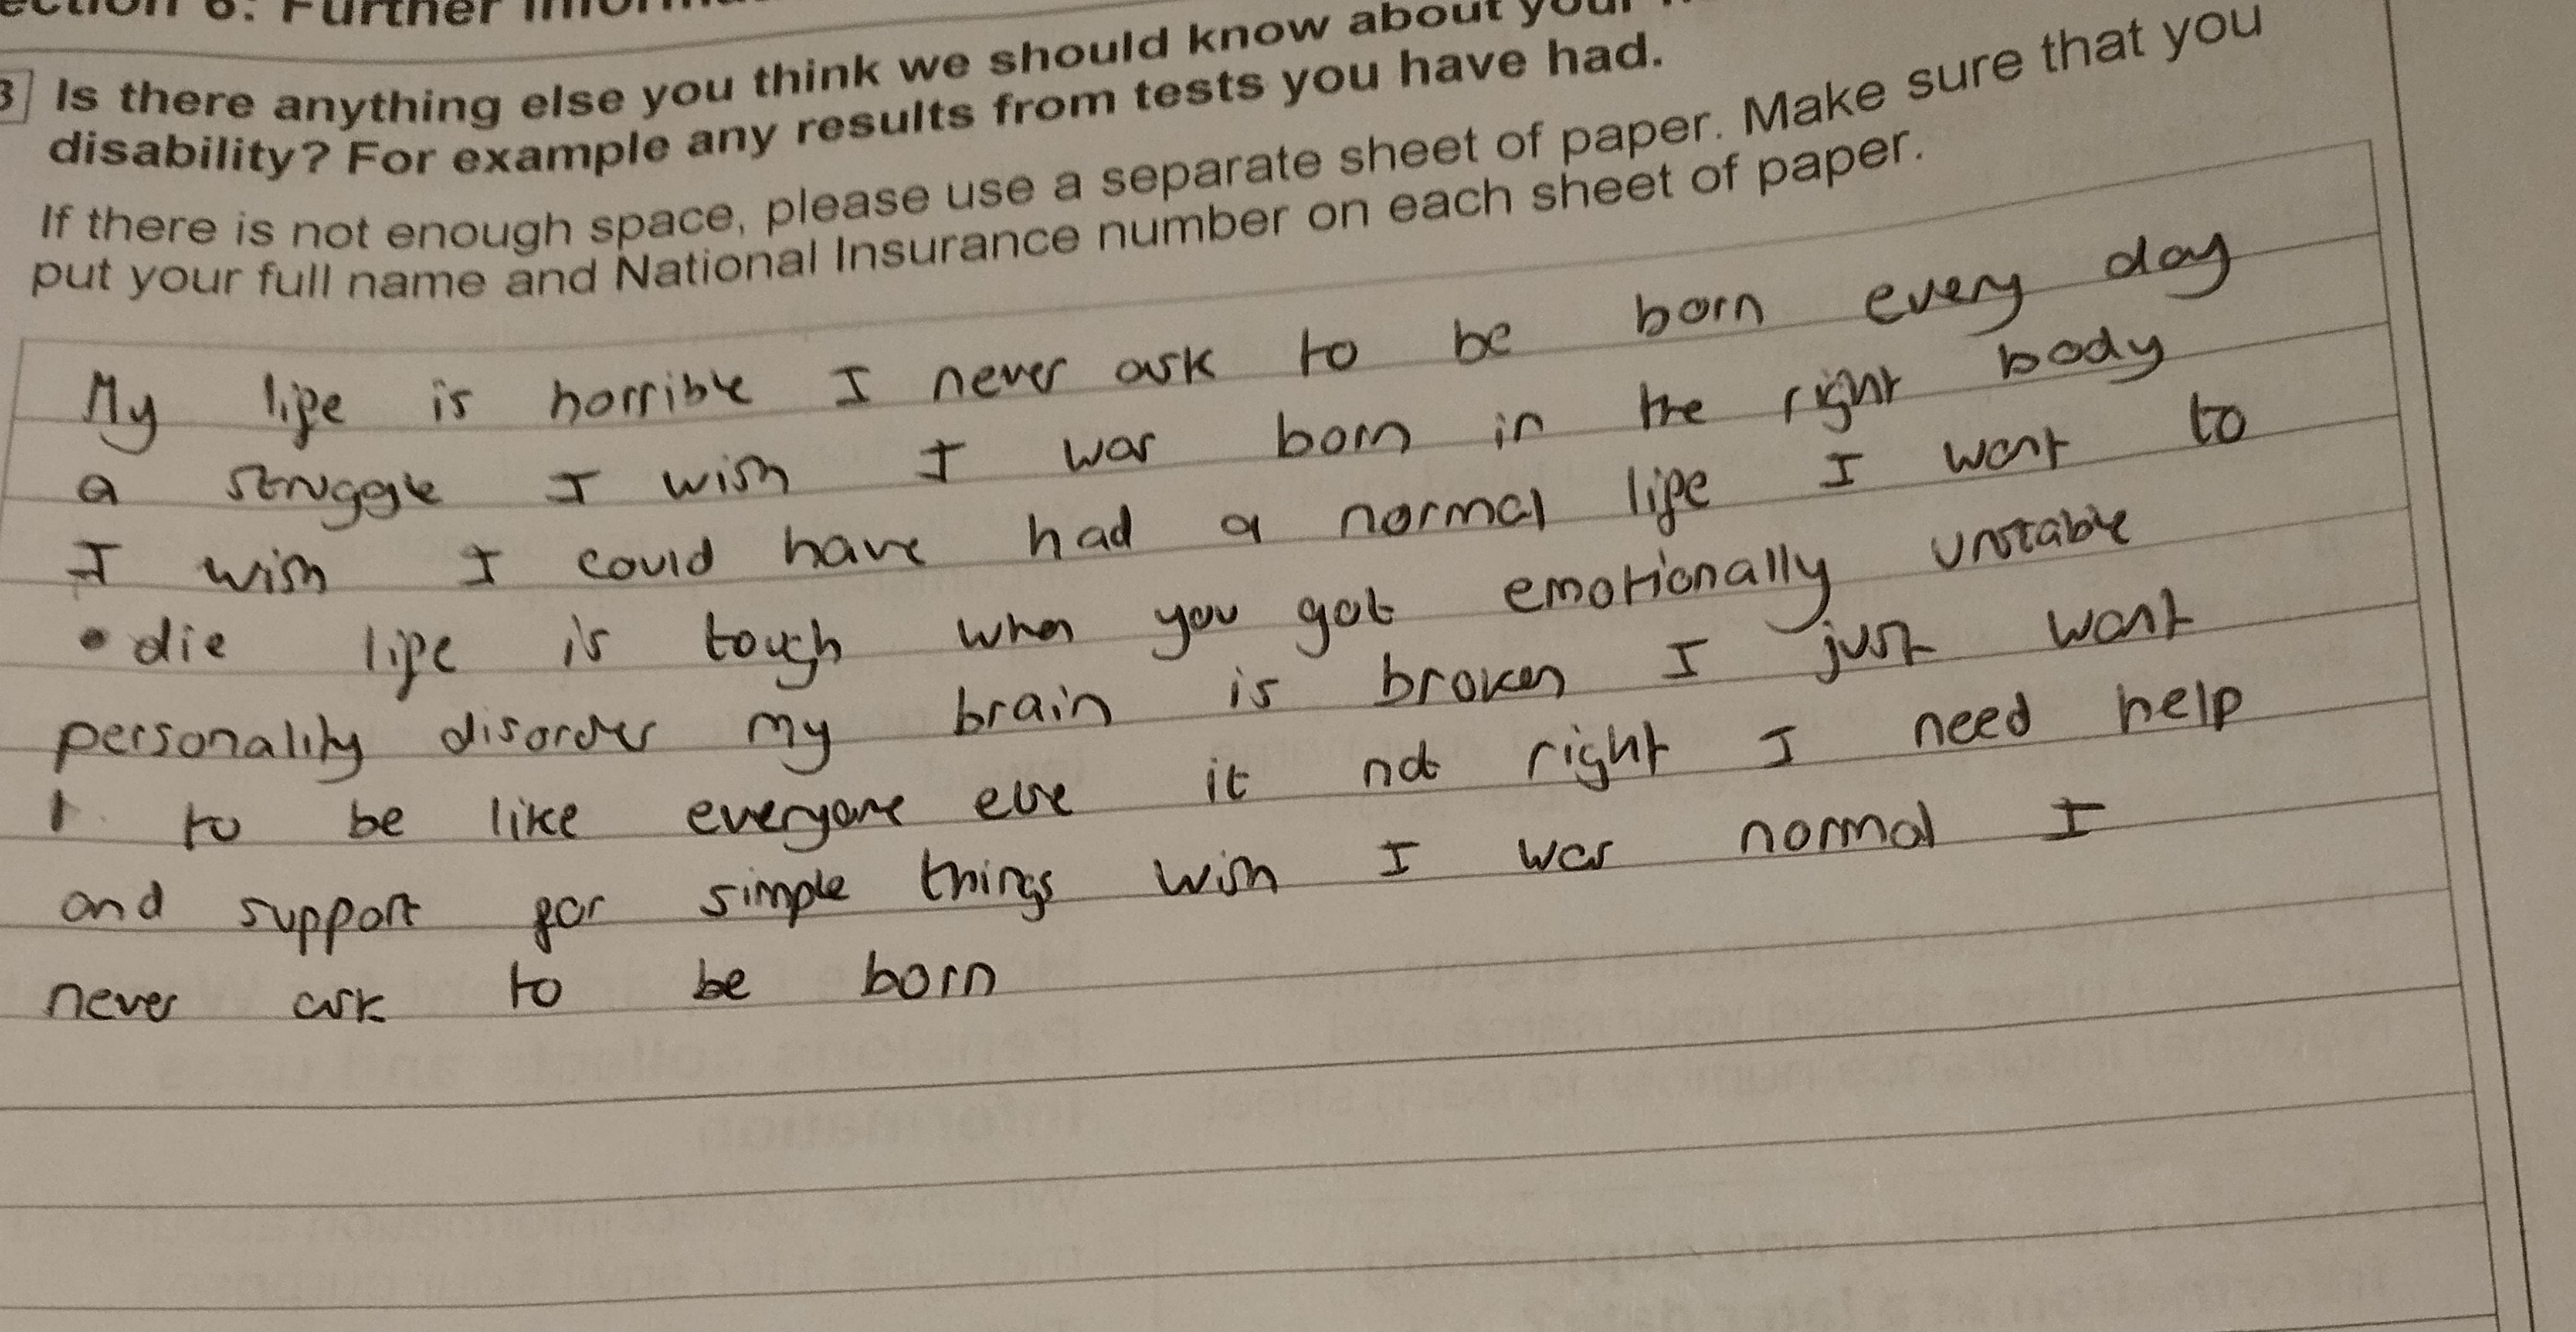 ection 6: Further
3 Is there anything else you think we should know about your
disability? For example any results from tests you have had.
If there is not enough space, please use a separate sheet of paper. Make sure that you
put your full name and National Insurance number on each sheet of paper.
My life is horrible I never ask to be born every day
a struggle I wish I was born in the right body
I wish I could have had a normal life I want to
die life is tough when you got emotionally unstable
personality disorder my brain is broken I just want
to be like everyone else it not right I need help
and support for simple things wish I was normal I
never ask to be born